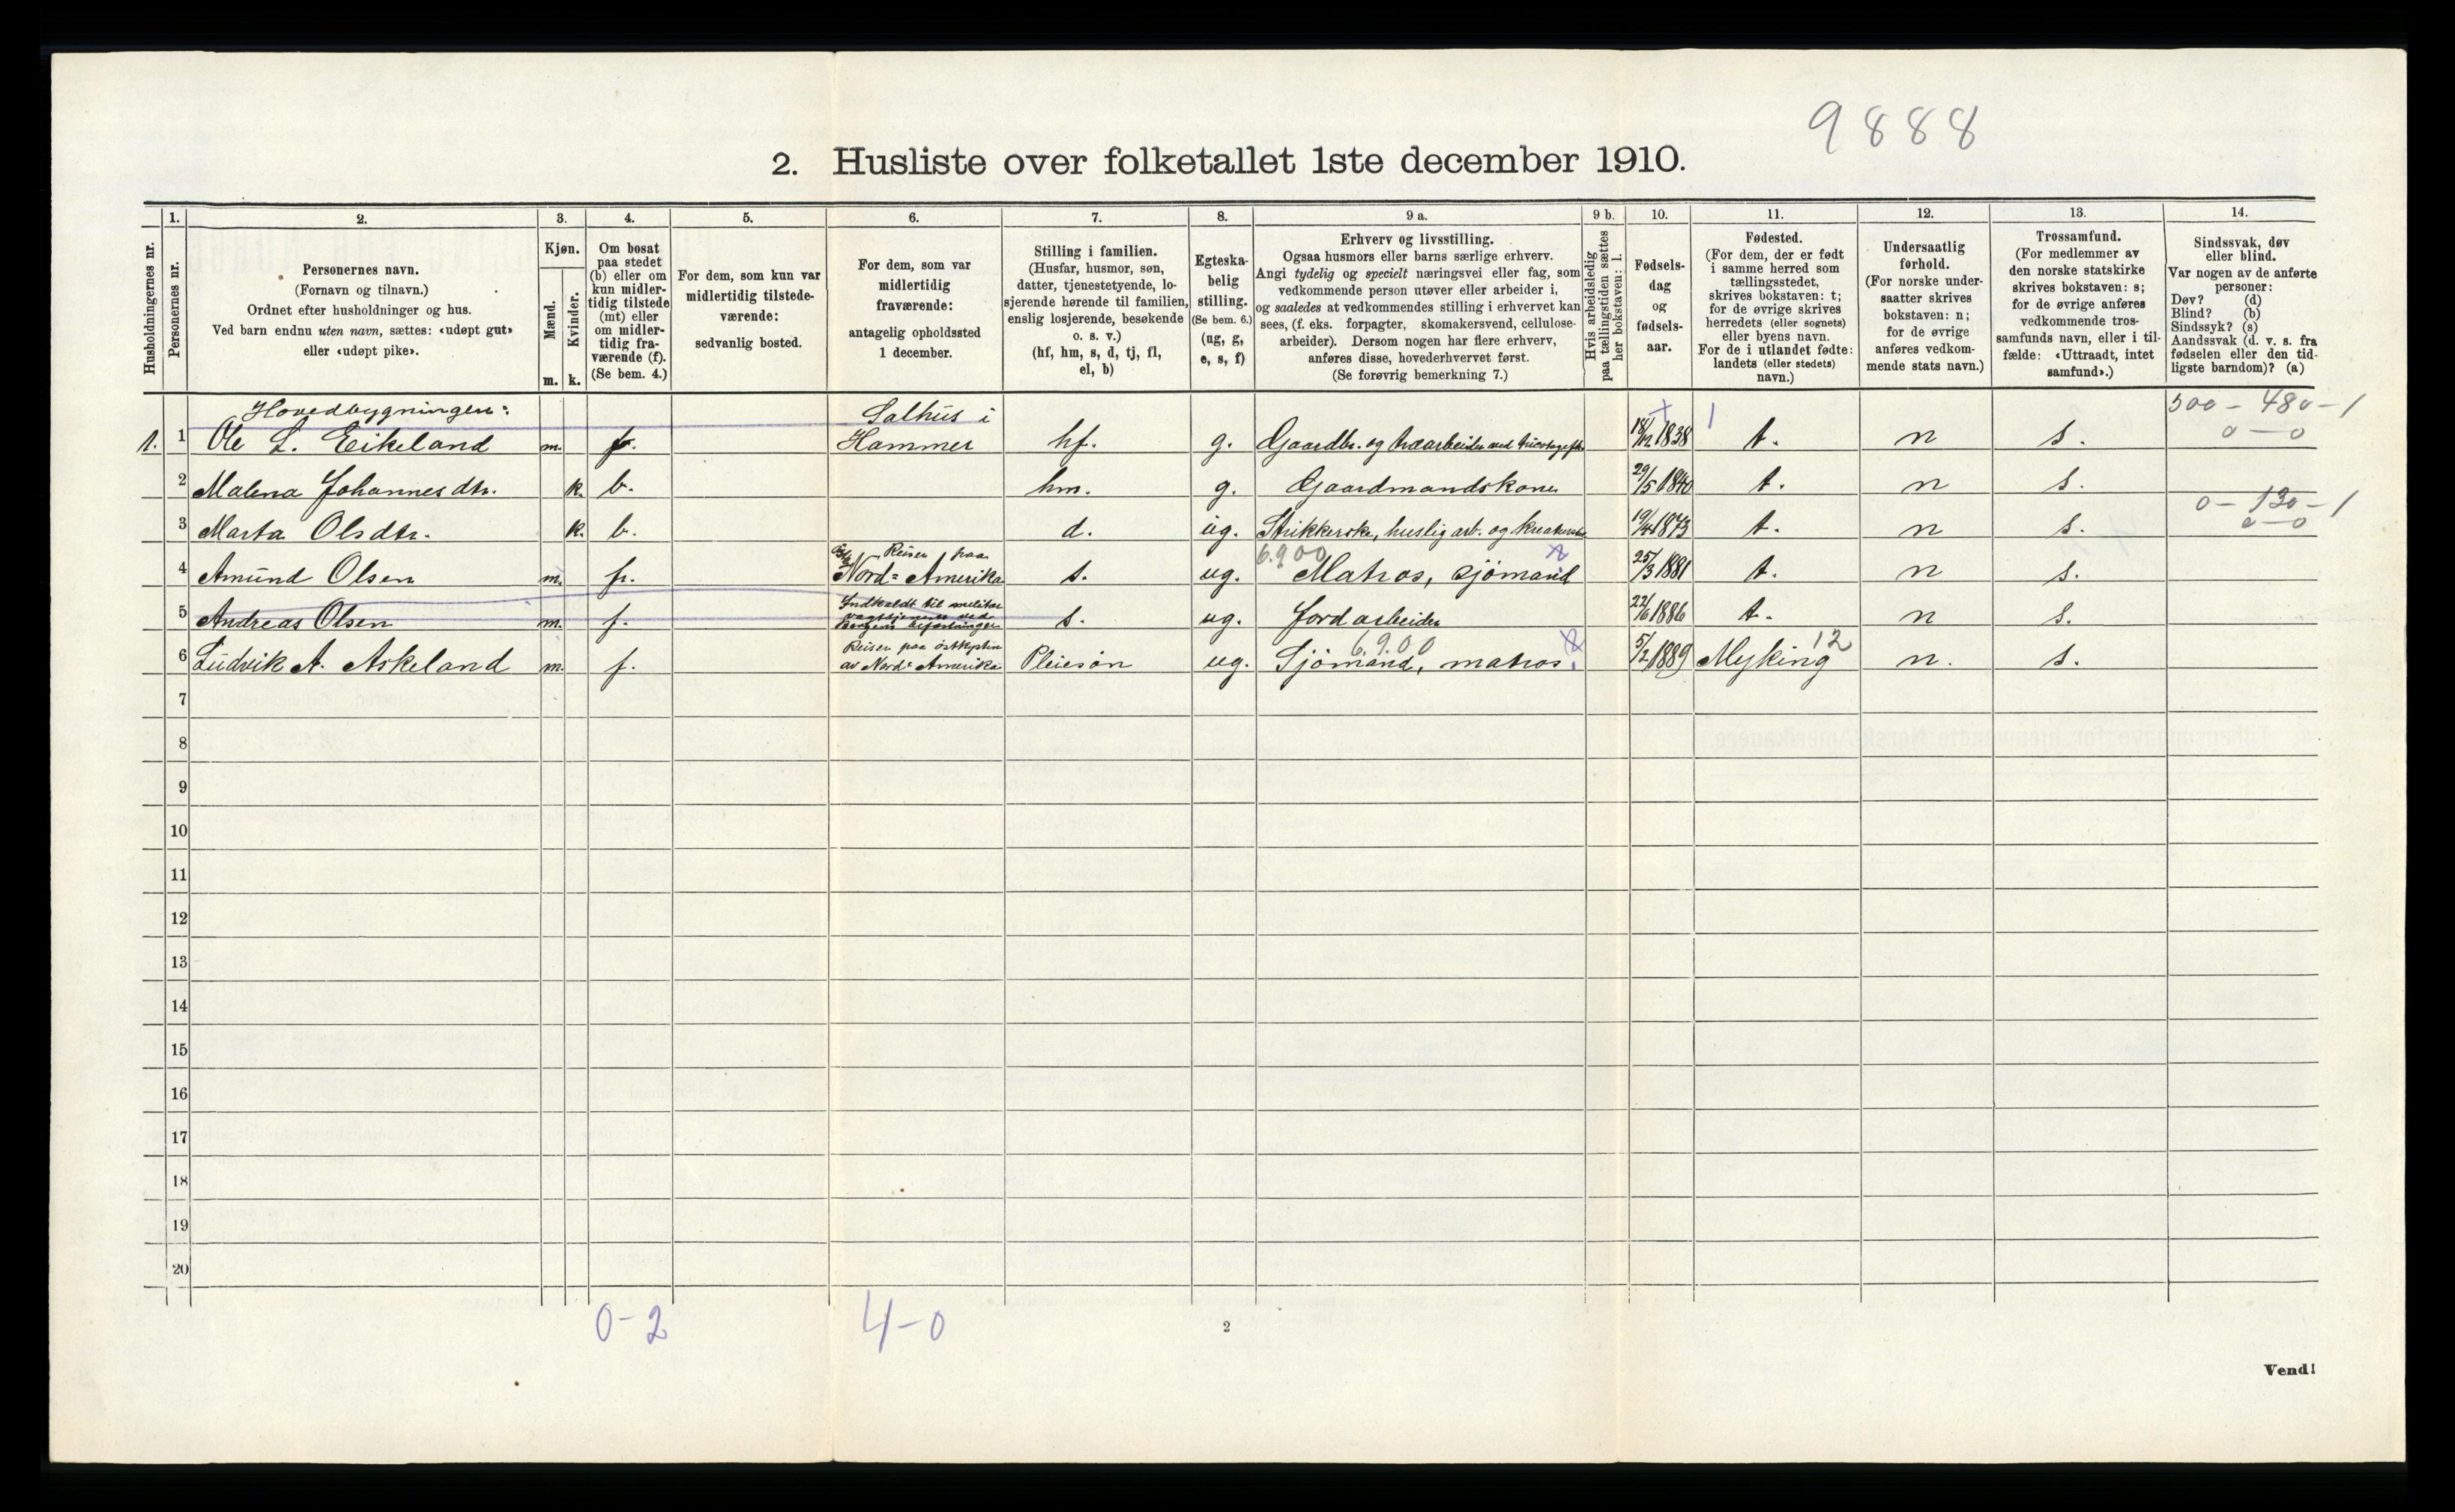 9888
2. Husliste over folketallet 1ste december 1910.
Husholdningernes nr.
1.
Personernes nr.
2.
Personernes navn.
(Fornavn og tilnavn.)
Ordnet efter husholdninger og hus.
Ved barn endnu uten navn, sættes: «udøpt gut»
eller «udøpt pike».
3.
Kjøn.
Mænd.
m.
Kvinder.
k.
4.
Om bosat
paa stedet
(b) eller om
kun midler-
tidig tilstede
(mt) eller
om midler-
tidig fra-
værende (f).
(Se bem. 4.)
5.
For dem, som kun var
midlertidig tilstede-
værende:
sedvanlig bosted.
6.
For dem, som var
midlertidig
fraværende:
antagelig opholdssted
1 december.
7.
Stilling i familien.
(Husfar, husmor, søn,
datter, tjenestetyende, lo-
sjerende hørende til familien,
enslig losjerende, besøkende
o. s. v.)
(hf, hm, s, d, tj, fl,
el, b)
8.
Egteska-
belig
stilling.
(Se bem. 6.)
(ug, g,
e, s, f)
9 a.
Erhverv og livsstilling.
Ogsaa husmors eller barns særlige erhverv.
Angi tydelig og specielt næringsvei eller fag, som
vedkommende person utøver eller arbeider i,
og saaledes at vedkommendes stilling i erhvervet kan
sees, (f. eks. forpagter, skomakersvend, cellulose-
arbeider). Dersom nogen har flere erhverv,
anføres disse, hovederhvervet først.
(Se forøvrig bemerkning 7.)
9 b.
Hvis arbeidsledig
paa tællingstiden sættes
her bokstaven: l.
10.
Fødsels-
dag
og
fødsels-
aar.
11.
Fødested.
(For dem, der er født
i samme herred som
tællingsstedet,
skrives bokstaven: t;
for de øvrige skrives
herredets (eller sognets)
eller byens navn.
For de i utlandet fødte:
landets (eller stedets)
navn.)
12.
Undersaatlig
forhold.
(For norske under-
saatter skrives
bokstaven: n;
for de øvrige
anføres vedkom-
mende stats navn.)
13.
Trossamfund.
(For medlemmer av
den norske statskirke
skrives bokstaven: s;
for de øvrige anføres
vedkommende tros-
samfunds navn, eller i til-
fælde: «Uttraadt, intet
samfund».)
14.
Sindssvak, døv
eller blind.
Var nogen av de anførte
personer:
Døv? (d)
Blind? (b)
Sindssyk? (s)
Aandssvak (d. v. s. fra
fødselen eller den tid-
ligste barndom)? (a)
Hovedbygningen: Salhus i 500 - 480 - 1
1. 1 Ole L. Eikeland m. f. Hammer hf. g. Gaardbr. og træarbeider ved 18/12 1838 t. n s. 0 - 0
2 Malena Johannesdtr. k. b. hm. g. Gaardmandskone 29/5 1840 t. n s.
0 - 130 - 1
3 Marta Olsdtr. k. b. d. ug. Strikkerske, huslig arb. og 19/4 1873 t. n s. 0 - 0
Reiser paa 6.900
4 Amund Olsen m. f. Nord-Amerika s. ug. Matros, sjömand 25/3 1881 t. n s.
Indkaldt til militær
vagttjeneste ved
5 Andreas Olsen m. f. Bergens befæstninger s. ug. Jordarbeider 22/6 1886 t. n s.
Reiser paa östkysten 6.900 12
6 Ludvik A. Askeland m. f. av Nord-Amerika Pleiesön ug. Sjömand, matros. 5/2 1889 Myking n. s.
7
8
9
10
11
12
13
14
15
16
17
18
19
20
0-2 4-0
2
Vend!